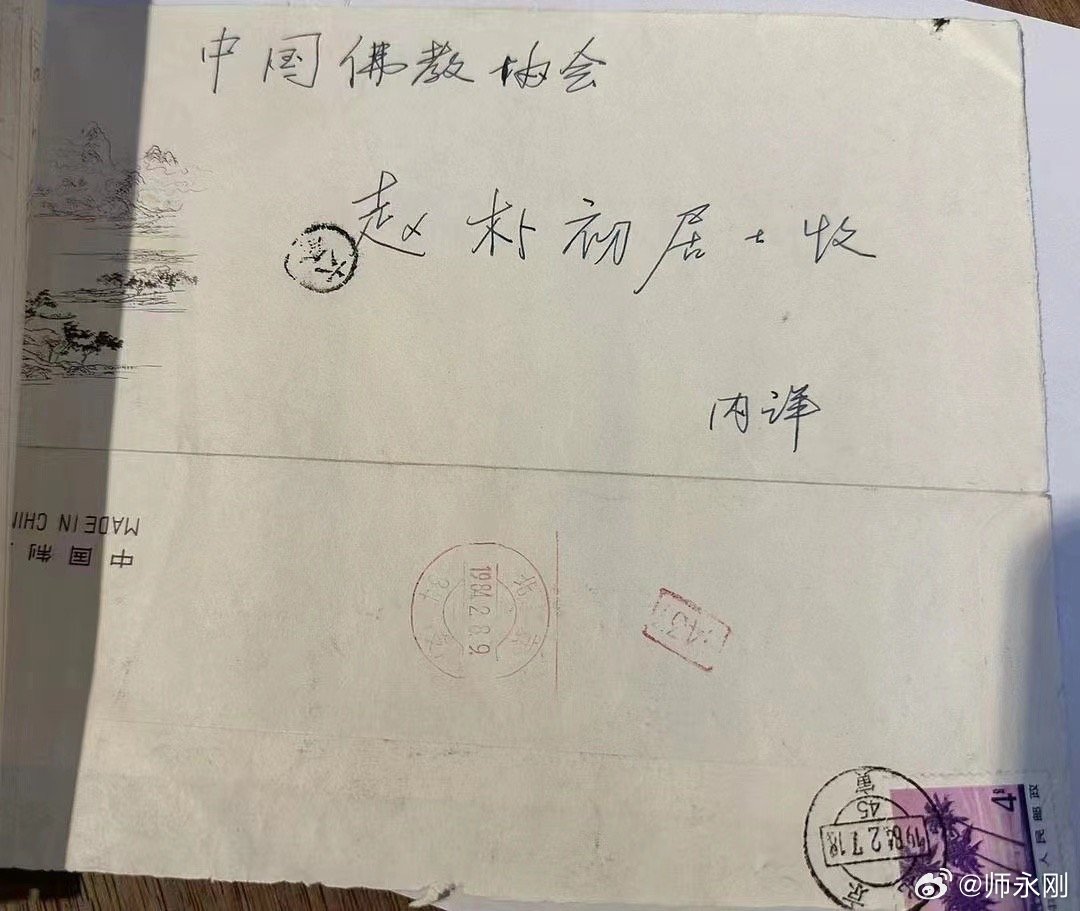 中国佛教协会
赵朴初居士收
内详
MADE IN CHI
中国制
北京
1984.2.8.9.
北京
1984.2.7.18
45
寅
4
人民邮政
@师永刚